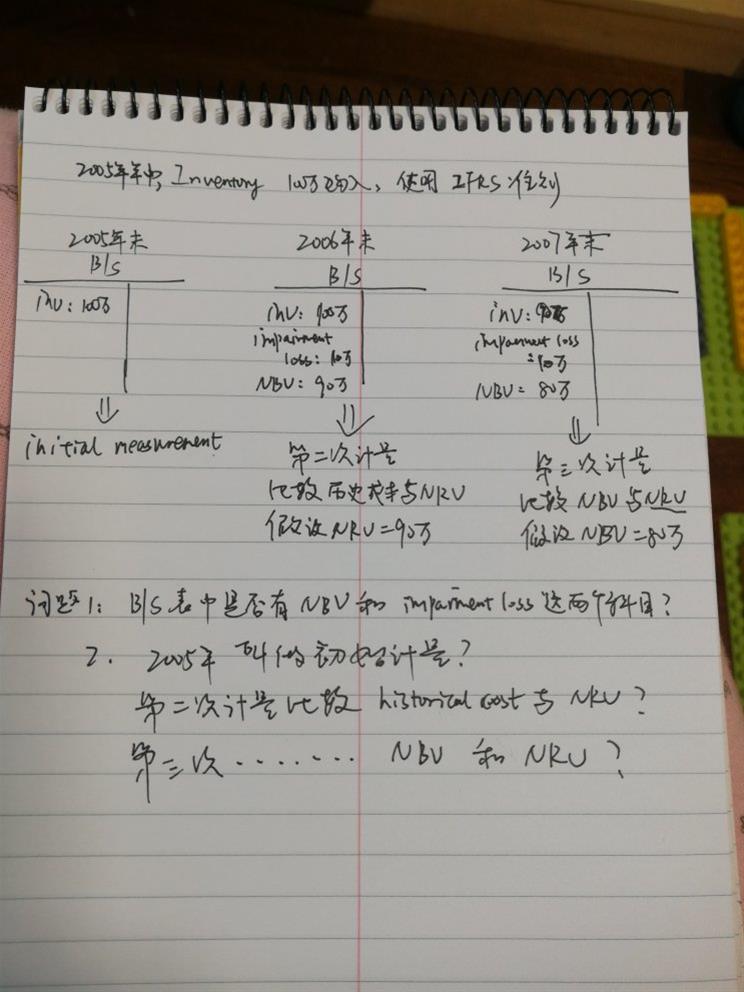 2005年年中, Inventory 100万购入, 使用 IFRS 准则
2005年末
B/S
inv: 100万
initial measurement
2006年末
B/S
inv: 100万
impairment
loss: 10万
NBV: 90万
第二次计量
比较历史成本与NRV
假设NRV=90万
2007年末
B/S
inv:
impairment loss
=10万
NBV= 80万
第三次计量
比较 NBV 与NRV
假设NBV=80万
问题1: B/S表中是否有 NBV 和 impairment loss 这两个科目?
2. 2005年 叫做初始计量?
第二次计量比较 historical cost 与 NRV?
第三次······· NBV 和 NRV?